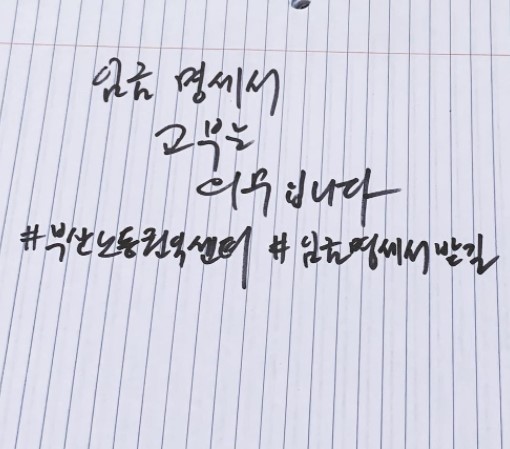 임금 명세서
교부는
의무입니다
#부산노동권익센터 #임금명세서받길